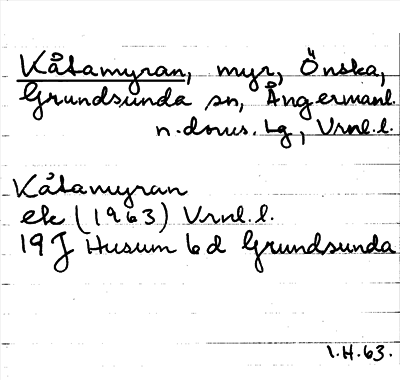 Kåtamyran, myr, Önska,
Grundsunda sn, Ångermanl.
n. doms. lg, Vrnl.l.
Kåtamyran
ek (1963) Vrnl.l.
19J Husum 6d Grundsunda
I.H.63.